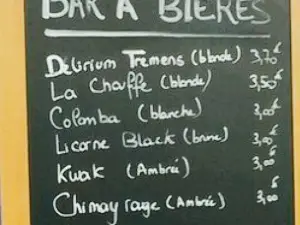 BAR A BIERES
Délirium Tremens (blonde) 3,70€
La Chouffe (blonde) 3,50€
Colomba (blanche) 3,00€
Licorne Black (brune) 3,00€
Kwak (Ambrée) 3,00€
Chimay rouge (Ambrée) 3,00